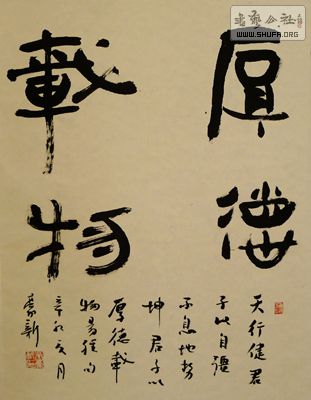 書藝公社
WWW.SHUFA.ORG
厚德
載物
天行健君
子以自彊
不息地勢
坤君子以
厚德載
物易經句
辛卯 月
新